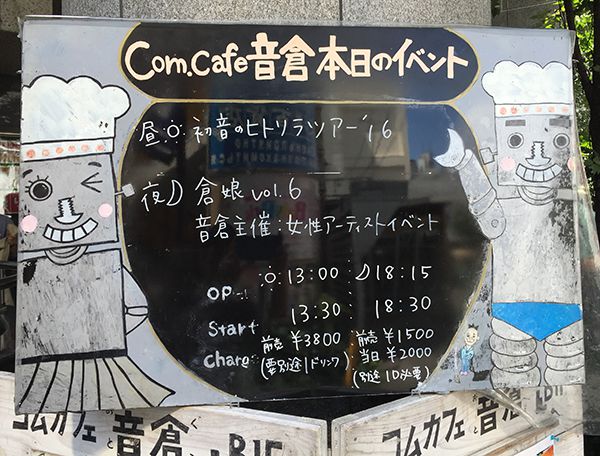 Com.Cafe 音倉 本日のイベント
昼 初音のヒトリラツアー'16
夜 倉娘 vol.6
音倉主催:女性アーティストイベント
OPEN 13:00 18:15
Start 13:30 18:30
Charge 前売 ¥3800 前売 ¥1500
(要別途1ドリンク) 当日 ¥2000
(別途1D必要)
コムカフェ 音倉 B1F
コムカフェ 音倉 B1F